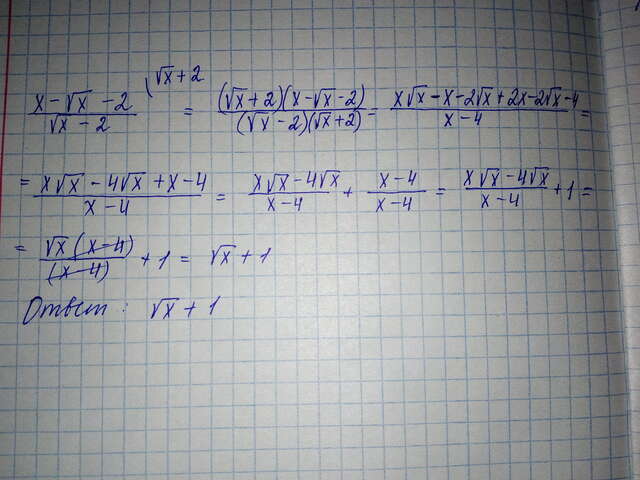 (x - √x - 2)/(√x - 2) \ √x + 2 = ((√x + 2)(x - √x - 2))/((√x - 2)(√x + 2)) = (x√x - x - 2√x + 2x - 2√x - 4)/(x - 4) =
= (x√x - 4√x + x - 4)/(x - 4) = (x√x - 4√x)/(x - 4) + (x - 4)/(x - 4) = (x√x - 4√x)/(x - 4) + 1 =
= (√x (x - 4))/((x - 4)) + 1 = √x + 1
Ответ : √x + 1